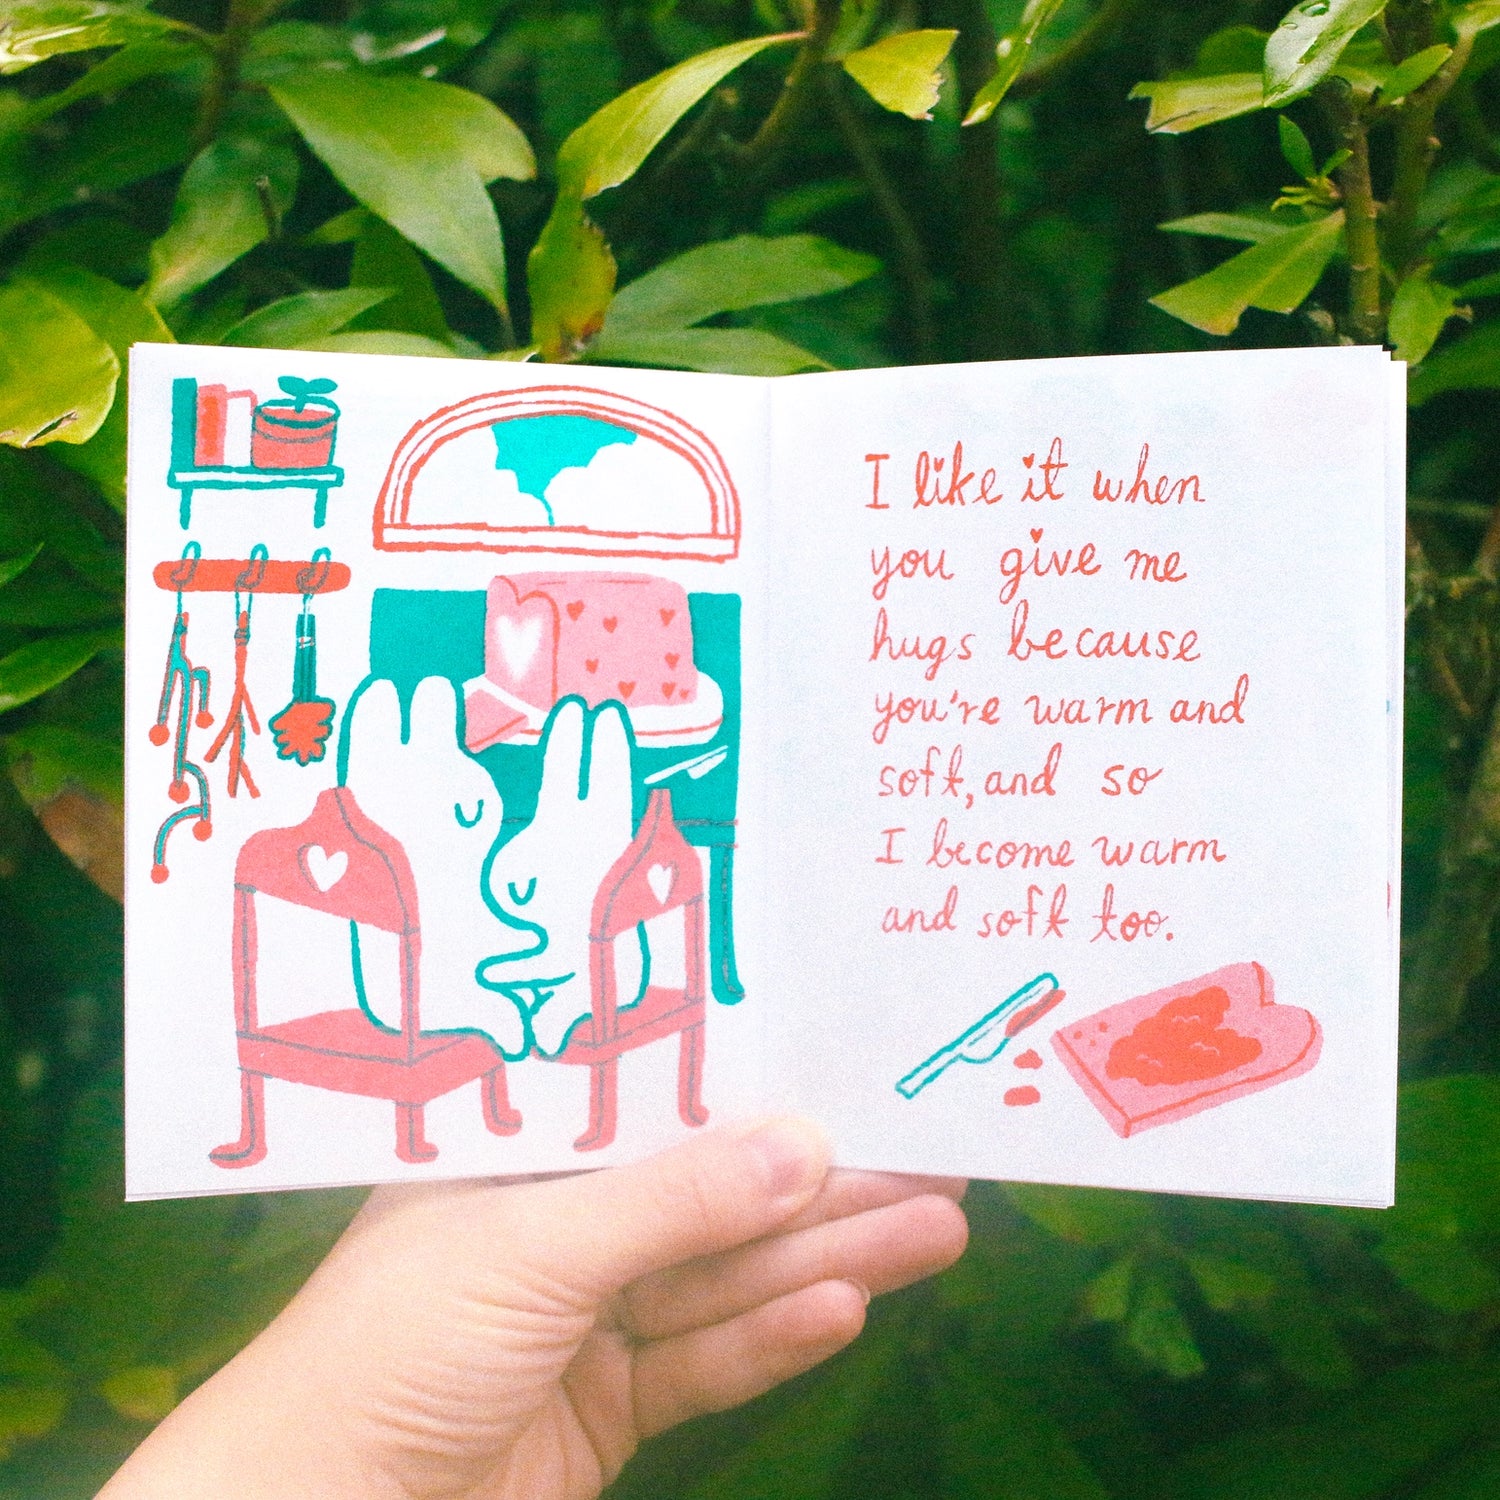 I like it when
you give me
hugs because
you're warm and
soft, and so
I become warm
and soft too.